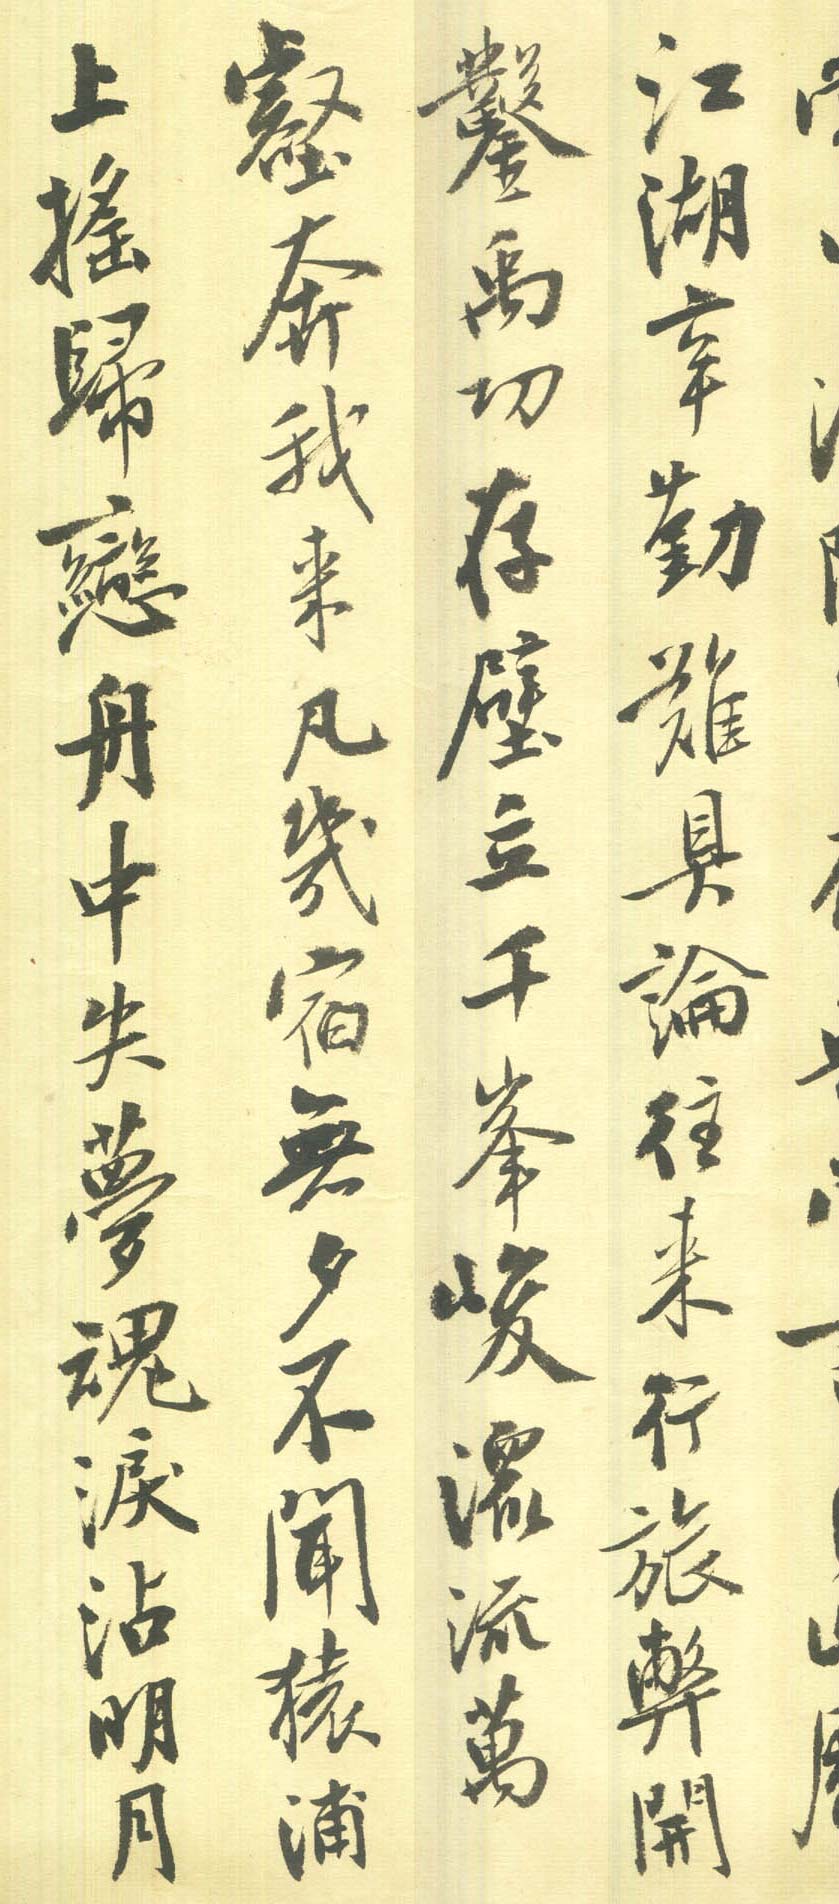 江湖辛勤難具論往来行旅弊開
鑿禹功存壁立千峯峻潀流萬
壑奔我来凡幾宿無夕不聞猿浦
上搖歸戀舟中失夢魂淚沾明月